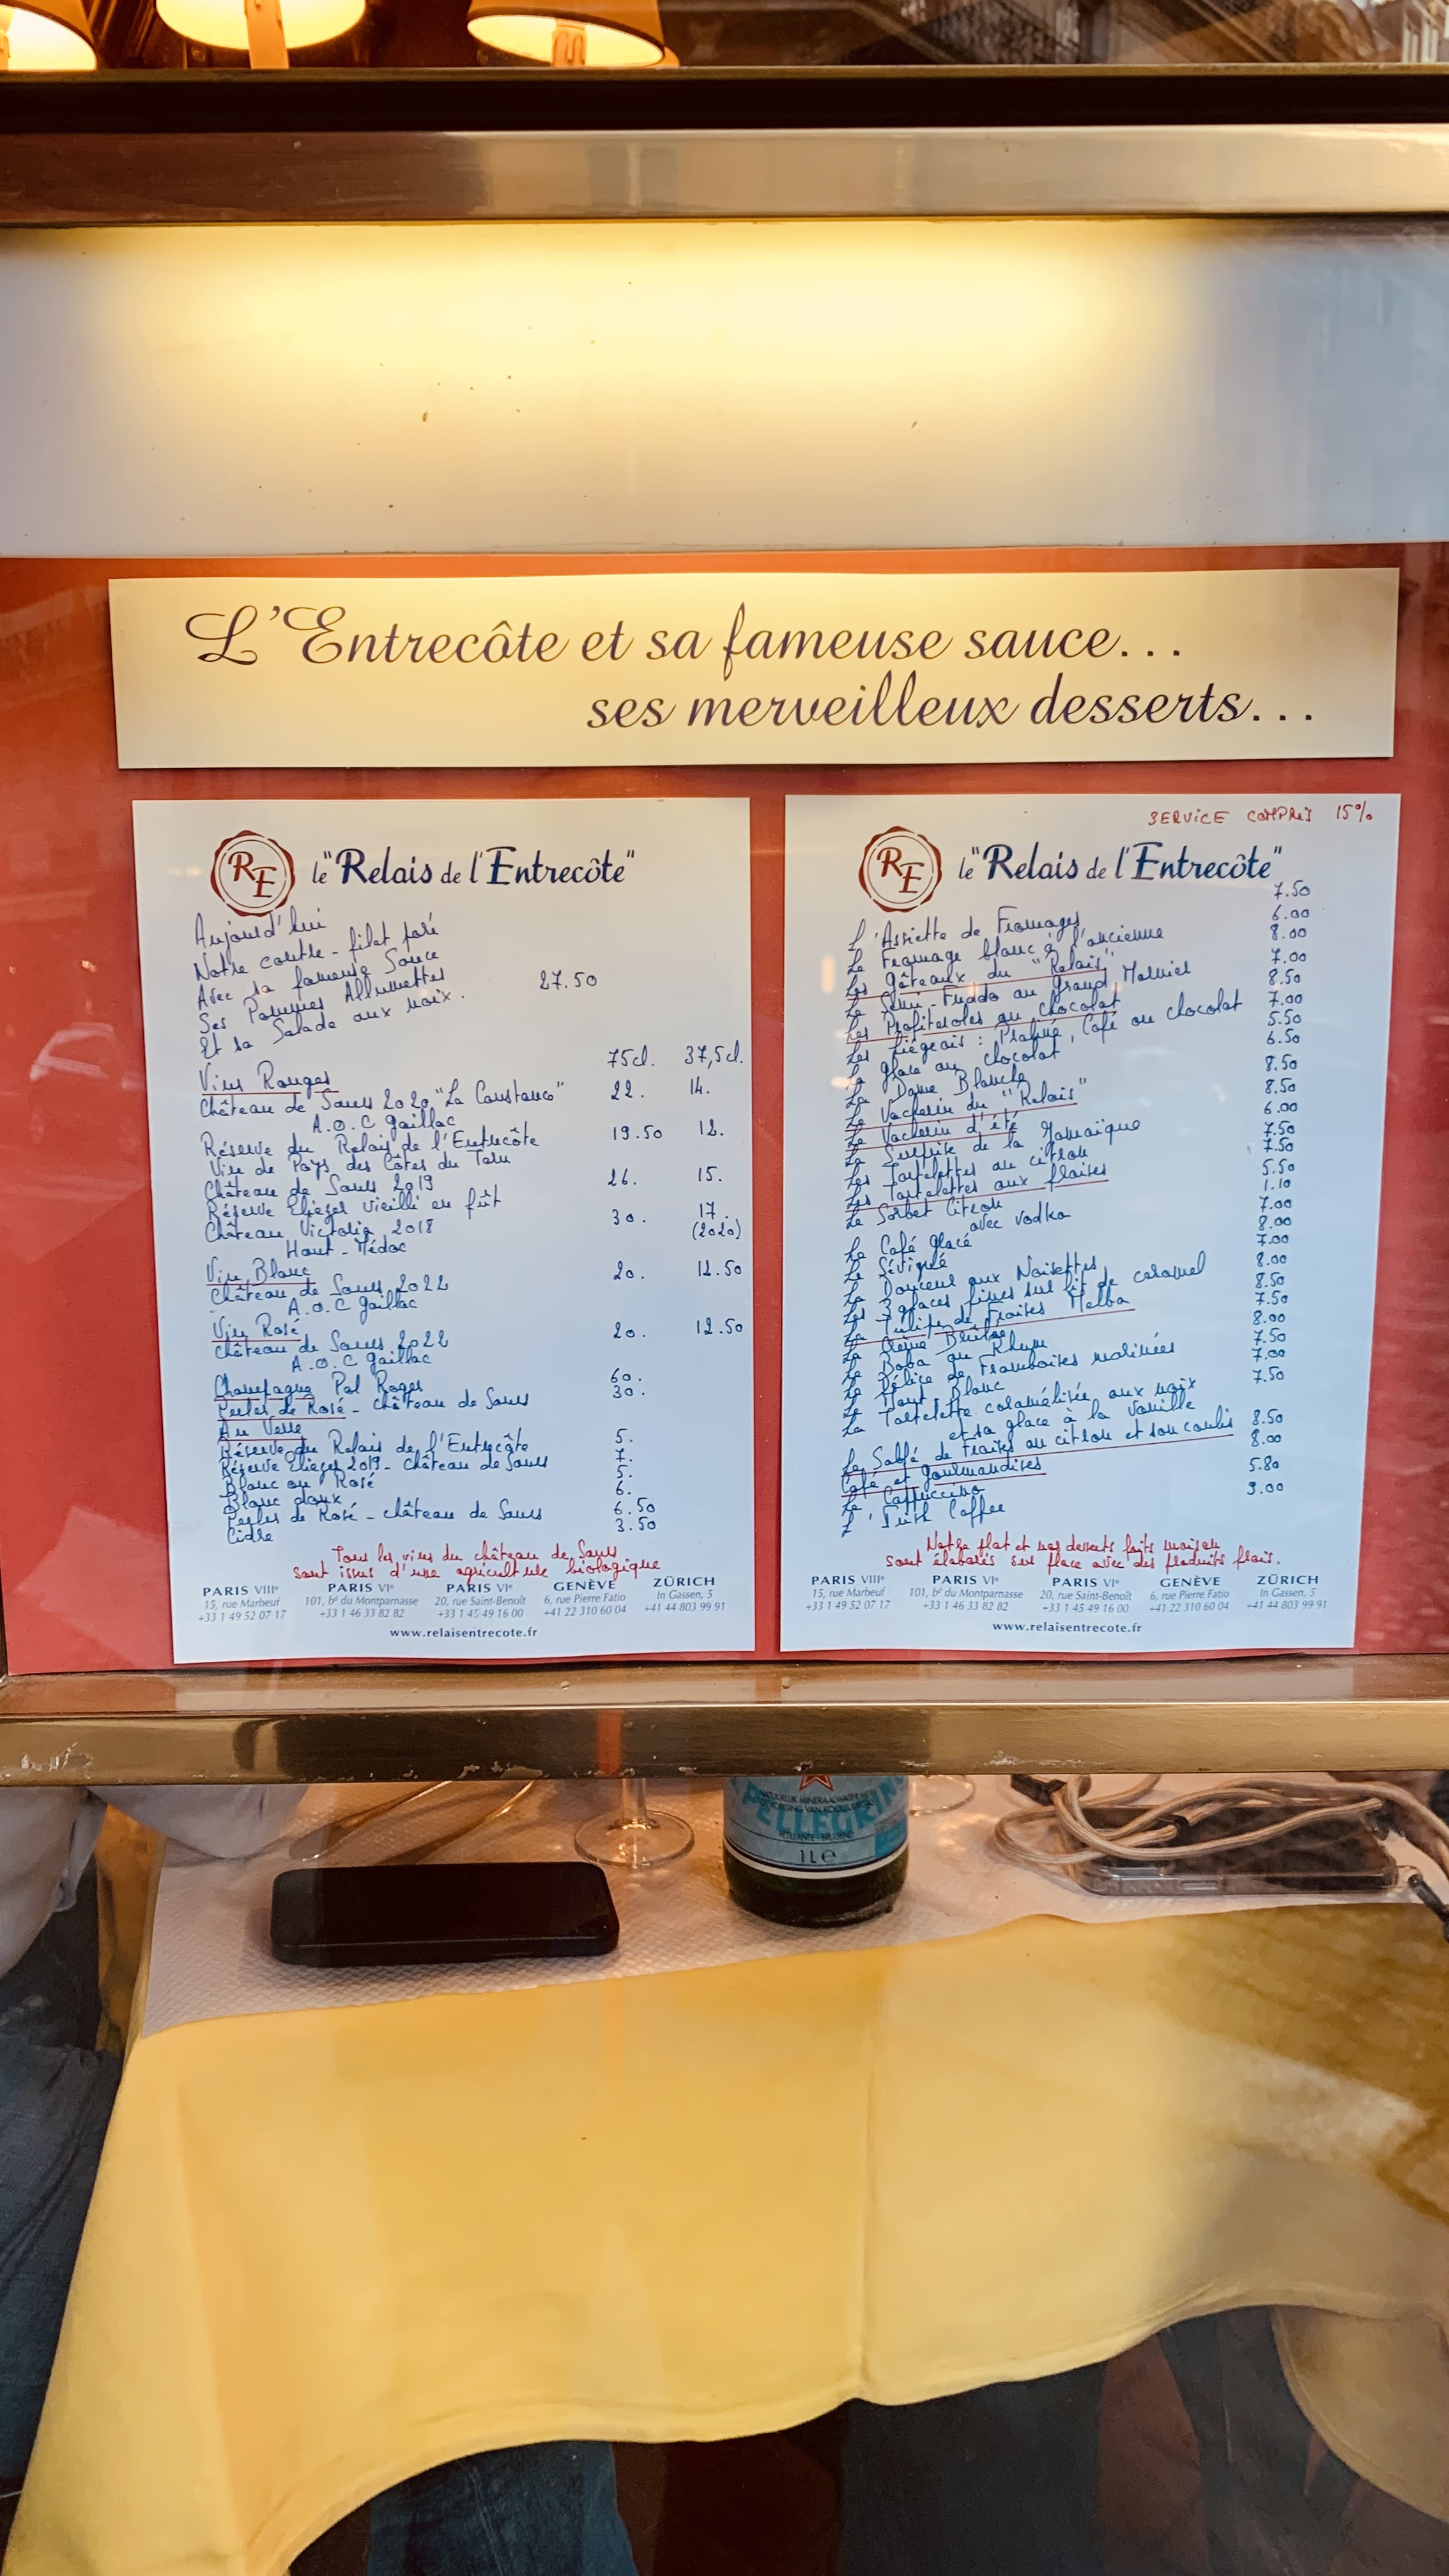 L'Entrecôte et sa fameuse sauce...
ses merveilleux desserts...
RE le "Relais de l'Entrecôte"
Aujourd'hui
Notre contre-filet paré
Avec sa fameuse Sauce
Ses Pommes Allumettes
Et sa Salade aux noix.
27.50
75cl. 37,5cl.
Vins Rouges
Château de Saurs 2020 "La Constance" 22. 14.
A.O.C Gaillac
Réserve du Relais de l'Entrecôte 19.50 12.
Vin de Pays des Côtes du Tarn
Château de Saurs 2019 26. 15.
Réserve Eliezer vieilli en fût
Château Victoria 2018 30. 17.
Haut-Médoc (2020)
Vin Blanc
Château de Saurs 2022 20. 12.50
A.O.C Gaillac
Vin Rosé
Château de Saurs 2022 20. 12.50
A.O.C Gaillac
Champagne Pol Roger 60.
Perles de Rosé - château de Saurs 30.
Au Verre
Réserve du Relais de l'Entrecôte 5.
Réserve Eliezer 2019 - château de Saurs 7.
Blanc ou Rosé 5.
Blanc doux 6.
Perles de Rosé - château de Saurs 6.50
Cidre 3.50
Tous les vins du château de Saurs
sont issus d'une agriculture biologique
PARIS VIIIe PARIS VIe PARIS VIe GENÈVE ZÜRICH
15, rue Marbeuf 101, bd du Montparnasse 20, rue Saint-Benoît 6, rue Pierre Fatio In Gassen, 5
+33 1 49 52 07 17 +33 1 46 33 82 82 +33 1 45 49 16 00 +41 22 310 60 04 +41 44 803 99 91
www.relaisentrecote.fr
SERVICE COMPRIS 15%
RE le "Relais de l'Entrecôte"
L'Assiette de Fromages 7.50
Le Fromage blanc à l'ancienne 6.00
Les Gâteaux du "Relais" 8.00
Le Semi-Freddo au Grand Marnier 7.00
Les Profiteroles au chocolat 8.50
Les Liégeois : Praliné, Café ou chocolat 7.00
La glace au chocolat 5.50
La Dame Blanche 6.50
Le Vacherin du "Relais" 8.50
Le Vacherin d'été 8.50
La Surprise de la Jamaïque 6.00
Les Tartelettes au citron 7.50
Les Tartelettes aux fraises 7.50
Le Sorbet Citron 5.50
avec vodka 1.10
Le Café glacé 7.00
Le Sévigné 8.00
La Douceur aux Noisettes 7.00
Les 3 glaces fines sur lit de caramel 8.00
La Tulipe de Fraises Melba 8.50
La Crème Brûlée 7.50
Le Baba au Rhum 8.00
Le Délice de Framboises marinées 7.50
Le Mont Blanc 7.00
La Tartelette caramélisée aux noix 7.50
et sa glace à la vanille
Le Sablé de Fraises au citron et son coulis 8.50
Café et gourmandises 8.00
Le Cappuccino 5.80
L'Irish Coffee 9.00
Notre plat et nos desserts faits maison
sont élaborés sur place avec des produits frais.
PARIS VIIIe PARIS VIe PARIS VIe GENÈVE ZÜRICH
15, rue Marbeuf 101, bd du Montparnasse 20, rue Saint-Benoît 6, rue Pierre Fatio In Gassen, 5
+33 1 49 52 07 17 +33 1 46 33 82 82 +33 1 45 49 16 00 +41 22 310 60 04 +41 44 803 99 91
www.relaisentrecote.fr
NATUURLIJK MINERAALWATER MET
TOEVOEGING VAN KOOLZUURGAS
PELLEGRINO
PÉTILLANTE - BRUISEND
1L e